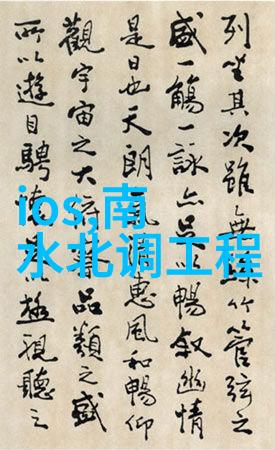 列坐其次雖無絲竹管弦之
盛一觴一詠亦足以暢敘幽情
是日也天朗氣清惠風和暢仰
觀宇宙之大俯察品類之盛
所以遊目騁極視聽之
ios,南
水北调工程